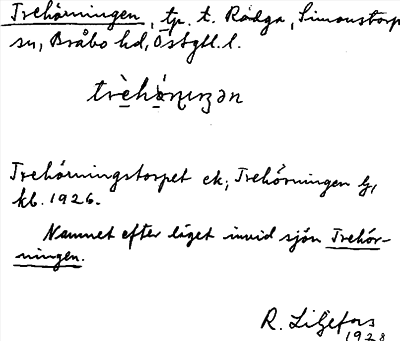 Trehörningen, tp. t. Rödga, Simonstorps
sn, Bråbo hd, Östgtl. l.
Trehörningstorpet ek, Trehörningen lg,
kb. 1926.
Namnet efter läget invid sjön Trehör-
ningen.
R. Liljefors
1928